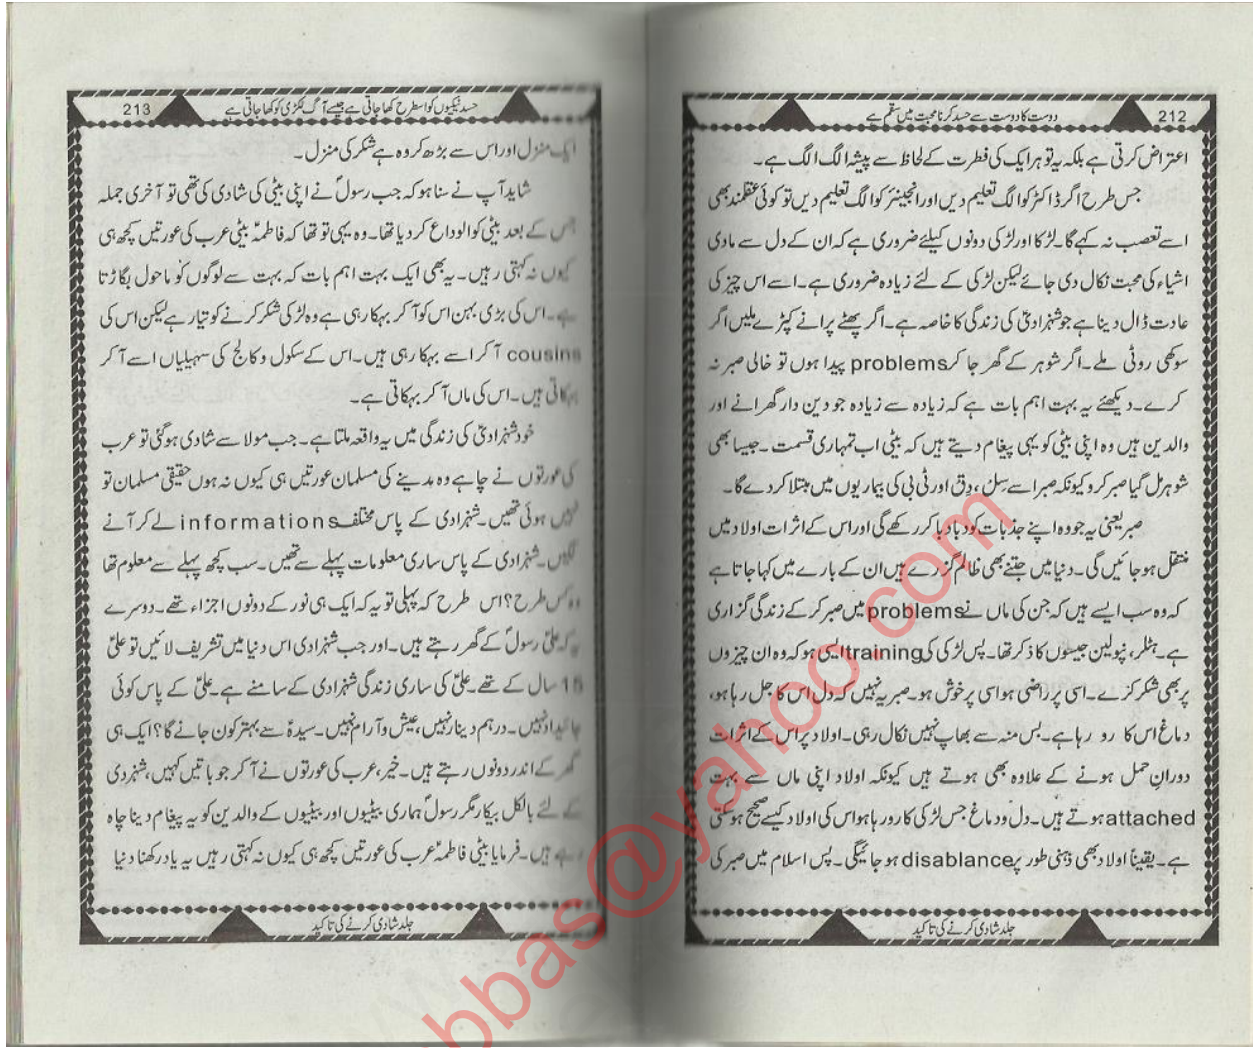 212
دوست کا دوست سے حسد کرنا محبت میں سقم ہے
اعتراض کرتی ہے بلکہ یہ تو ہر ایک کی فطرت کے لحاظ سے پیشہ الگ الگ ہے۔
جس طرح اگر ڈاکٹر کو الگ تعلیم دیں اور انجینئر کو الگ تعلیم دیں تو کوئی عقلمند بھی
اسے تعصب نہ کہے گا۔ لڑکا اور لڑکی دونوں کیلئے ضروری ہے کہ ان کے دل سے مادی
اشیاء کی محبت نکال دی جائے لیکن لڑکی کے لئے زیادہ ضروری ہے۔ اسے اس چیز کی
عادت ڈال دینا ہے جو شہزادیؑ کی زندگی کا خاصہ ہے۔ اگر پھٹے پرانے کپڑے ملیں اگر
سوکھی روٹی ملے۔ اگر شوہر کے گھر جا کر problems پیدا ہوں تو خالی صبر نہ
کرے۔ دیکھئے یہ بہت اہم بات ہے کہ زیادہ سے زیادہ جو دین دار گھرانے اور
والدین ہیں وہ اپنی بیٹی کو یہی پیغام دیتے ہیں کہ بیٹی اب تمہاری قسمت۔ جیسا بھی
شوہر مل گیا صبر کرو کیونکہ صبر اسے سِل، دِق اور ٹی بی کی بیماریوں میں مبتلا کر دے گا۔
صبر یعنی یہ جو وہ اپنے جذبات کو دبا دبا کر رکھے گی اور اس کے اثرات اولاد میں
منتقل ہو جائیں گی۔ دنیا میں جتنے بھی ظالم گزرے ہیں ان کے بارے میں کہا جاتا ہے
کہ وہ سب ایسے ہیں کہ جن کی ماں نے problems میں صبر کر کے زندگی گزاری
ہے۔ ہٹلر، نپولین جیسوں کا ذکر تھا۔ پس لڑکی کی training ایسی ہو کہ وہ ان چیزوں
پر بھی شکر کرے۔ اسی پر راضی ہو اسی پر خوش ہو۔ صبر یہ نہیں کہ دل اس کا جل رہا ہو،
دماغ اس کا رو رہا ہے۔ بس منہ سے بھاپ نہیں نکال رہی۔ اولاد پر اس کے اثرات
دورانِ حمل ہونے کے علاوہ بھی ہوتے ہیں کیونکہ اولاد اپنی ماں سے بہت
attached ہوتے ہیں۔ دل و دماغ جس لڑکی کا رو رہا ہو اس کی اولاد کیسے صحیح ہو سکتی
ہے۔ یقیناً اولاد بھی ذہنی طور پر disablance ہو جائیگی۔ پس اسلام میں صبر کی
جلد شادی کرنے کی تاکید
213
حسد نیکیوں کو اسطرح کھا جاتی ہے جیسے آگ لکڑی کو کھا جاتی ہے
ایک منزل اور اس سے بڑھ کر وہ ہے شکر کی منزل۔
شاید آپ نے سنا ہو کہ جب رسولؐ نے اپنی بیٹی کی شادی کی تھی تو آخری جملہ
جس کے بعد بیٹی کو الوداع کر دیا تھا۔ وہ یہی تو تھا کہ فاطمہؑ بیٹی عرب کی عورتیں کچھ ہی
کیوں نہ کہتی رہیں۔ یہ بھی ایک بہت اہم بات کہ بہت سے لوگوں کو ماحول بگاڑتا
ہے۔ اس کی بڑی بہن اس کو آ کر بہکا رہی ہے وہ لڑکی شکر کرنے کو تیار ہے لیکن اس کی
cousins آ کر اسے بہکا رہی ہیں۔ اس کے سکول و کالج کی سہیلیاں اسے آ کر
بہکاتی ہیں۔ اس کی ماں آ کر بہکاتی ہے۔
خود شہزادیؑ کی زندگی میں یہ واقعہ ملتا ہے۔ جب مولا سے شادی ہو گئی تو عرب
کی عورتوں نے چاہے وہ مدینے کی مسلمان عورتیں ہی کیوں نہ ہوں حقیقی مسلمان تو
نہیں ہوئی تھیں۔ شہزادی کے پاس مختلف informations لے کر آنے
لگیں۔ شہزادی کے پاس ساری معلومات پہلے سے تھیں۔ سب کچھ پہلے سے معلوم تھا
وہ کس طرح؟ اس طرح کہ پہلی تو یہ کہ ایک ہی نور کے دونوں اجزاء تھے۔ دوسرے
یہ کہ علیؑ رسولؐ کے گھر رہتے ہیں۔ اور جب شہزادی اس دنیا میں تشریف لائیں تو علیؑ
15 سال کے تھے۔ علیؑ کی ساری زندگی شہزادی کے سامنے ہے۔ علیؑ کے پاس کوئی
جائیداد نہیں۔ درہم دینار نہیں، عیش و آرام نہیں۔ سیدہؑ سے بہتر کون جانے گا؟ ایک ہی
گھر کے اندر دونوں رہتے ہیں۔ خیر، عرب کی عورتوں نے آ کر جو باتیں کہیں، شہزدی
کے لئے بالکل بیکار مگر رسولؐ ہماری بیٹیوں اور بیٹیوں کے والدین کو یہ پیغام دینا چاہ
رہے ہیں۔ فرمایا بیٹی فاطمہؑ عرب کی عورتیں کچھ ہی کیوں نہ کہتی رہیں یہ یاد رکھنا دنیا
جلد شادی کرنے کی تاکید
bbas@yahoo.com